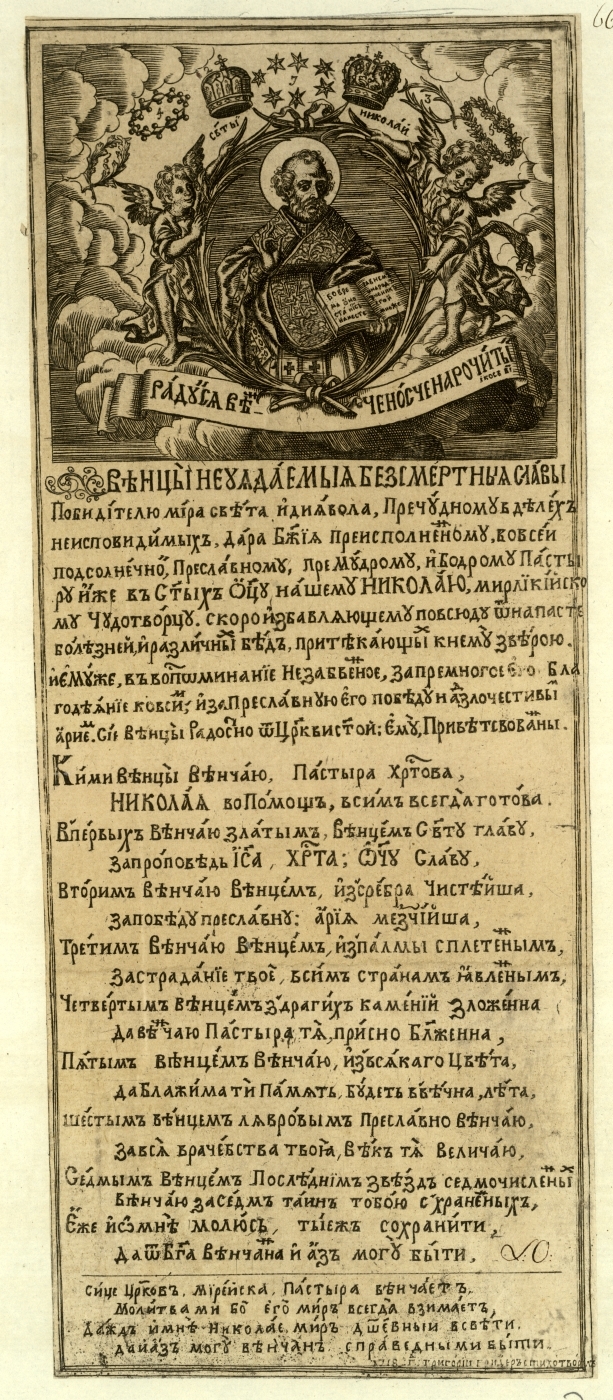 СВ҃ТЫ НИКОЛАЙ
РА́ДУЙСЯ ВѢ҃НЧЕНО́СЧЕ НАРОЧИ́ТЫЙ
ВѢНЦЫ̀ НЕУѦДА́ЕМЫꙖ БЕЗСМЕ́РТНЫꙖ СЛА́ВЫ
Побиди́телю мі́ра свѣ́та и҆ диѧ́вола, Пречу́дному в дѣле́хъ
неисповиди́мыхъ, да́ра Бж҃їѧ преисполне́ному, во все́й
подсолне́чной, Пресла́вному, преМу́дрому, и҆ Бо́дрому Па́сты
ру и҆́же въ Ст҃ы́хъ Ѻц҃у́ на́шему НИКОЛА́Ю, мирликі́йско
му Чудотво́рцу. ско́ро и҆збавлѧ́ющему повсю́ду ѿ напа́сте
боле́зней, и҆ разли́чны бѣ́дъ, притѣка́ющы к нему̀ з вѣ́рою.
и҆ є҆му́же, въ вопѡминанїе Незабве́ное, за премногое є҆го Бла
годѣѧ́нїе ко всѣ́, и҆ за Пресла́вную є҆го̀ побѣ́ду на̀ злочести́вы
а҆рие. Сїѐ вѣнцы̀ ра́досно ѿ Цр҃кви ст҃ой: є҆му̀, Привѣтствова́ны.
Ки́ми вѣнцы̀ вѣнча́ю, Па́стыра Хр҃то́ва,
НИКОЛА́Ꙗ во По́мощъ, всимъ всегда̀ гото́ва.
В пе́рвыхъ вѣнча́ю златы́мъ, вѣнце́мъ Свт҃у главу̀,
за про́повѣдь І҆И҃са, ХР҃ТА̀; Ѻ҆ч҃у Сла́ву,
Вто́римъ вѣнча́ю вѣнце́мъ, и҆з̾ сре́бра Чистѣ́йша,
за побѣ́ду пресла́вну: а҆́риѧ мезчі́йша,
Тре́тимъ вѣнча́ю вѣнце́мъ, и҆з̾ па́лмы сплете́нымъ,
за страда́нїе твоѐ, всѝмъ стра́намъ ꙗ҆вле́нымъ,
Четве́ртымъ вѣнце́мъ з̾ драги́хъ ка́менїй зложе́нна
да вѣ́нчаю Па́стыра тѧ̀, при́сно Бл҃же́нна,
Пѧ́тымъ вѣнце́мъ вѣнча́ю, и҆з̾ всѧ́каго Цвѣ́та,
да Блажи́ма тѝ Па́мѧть, бу́деть в вѣ́чна, лѣ́та,
ше́стымъ вѣ́нцемъ лѧвро́вымъ Пресла́вно вѣнча́ю,
за всѧ̀ враче́бства твоѧ̀, вѣ́къ тѧ̀ велича́ю,
Седмы́мъ вѣнце́мъ Послѣ́днїмъ звѣ́здъ седмочисле́ны
вѣнча́ю за се́дмъ та́инъ тобо́ю схране́ныхъ,
Є҆́же и҆ со мнѣ̀ молю́сь, ты̀ежъ сохрани́ти,
Да ѿ Бг҃а вѣ́нчана и҆ а҆́зъ могу̀ бы́ти,
Си́це Цр҃ковъ, мирейска, Па́стыра вѣнча́етъ.
Моли́твами бо є҆гѡ̀ ми́ръ всегда̀ взима́етъ,
Да́ждъ и҆ мнѣ̀ Николае, ми́ръ дш҃е́вный в свѣ́ти.
да и҆ а҆́зъ могу̀ вѣнча́нъ спра́ведными бы́ти.